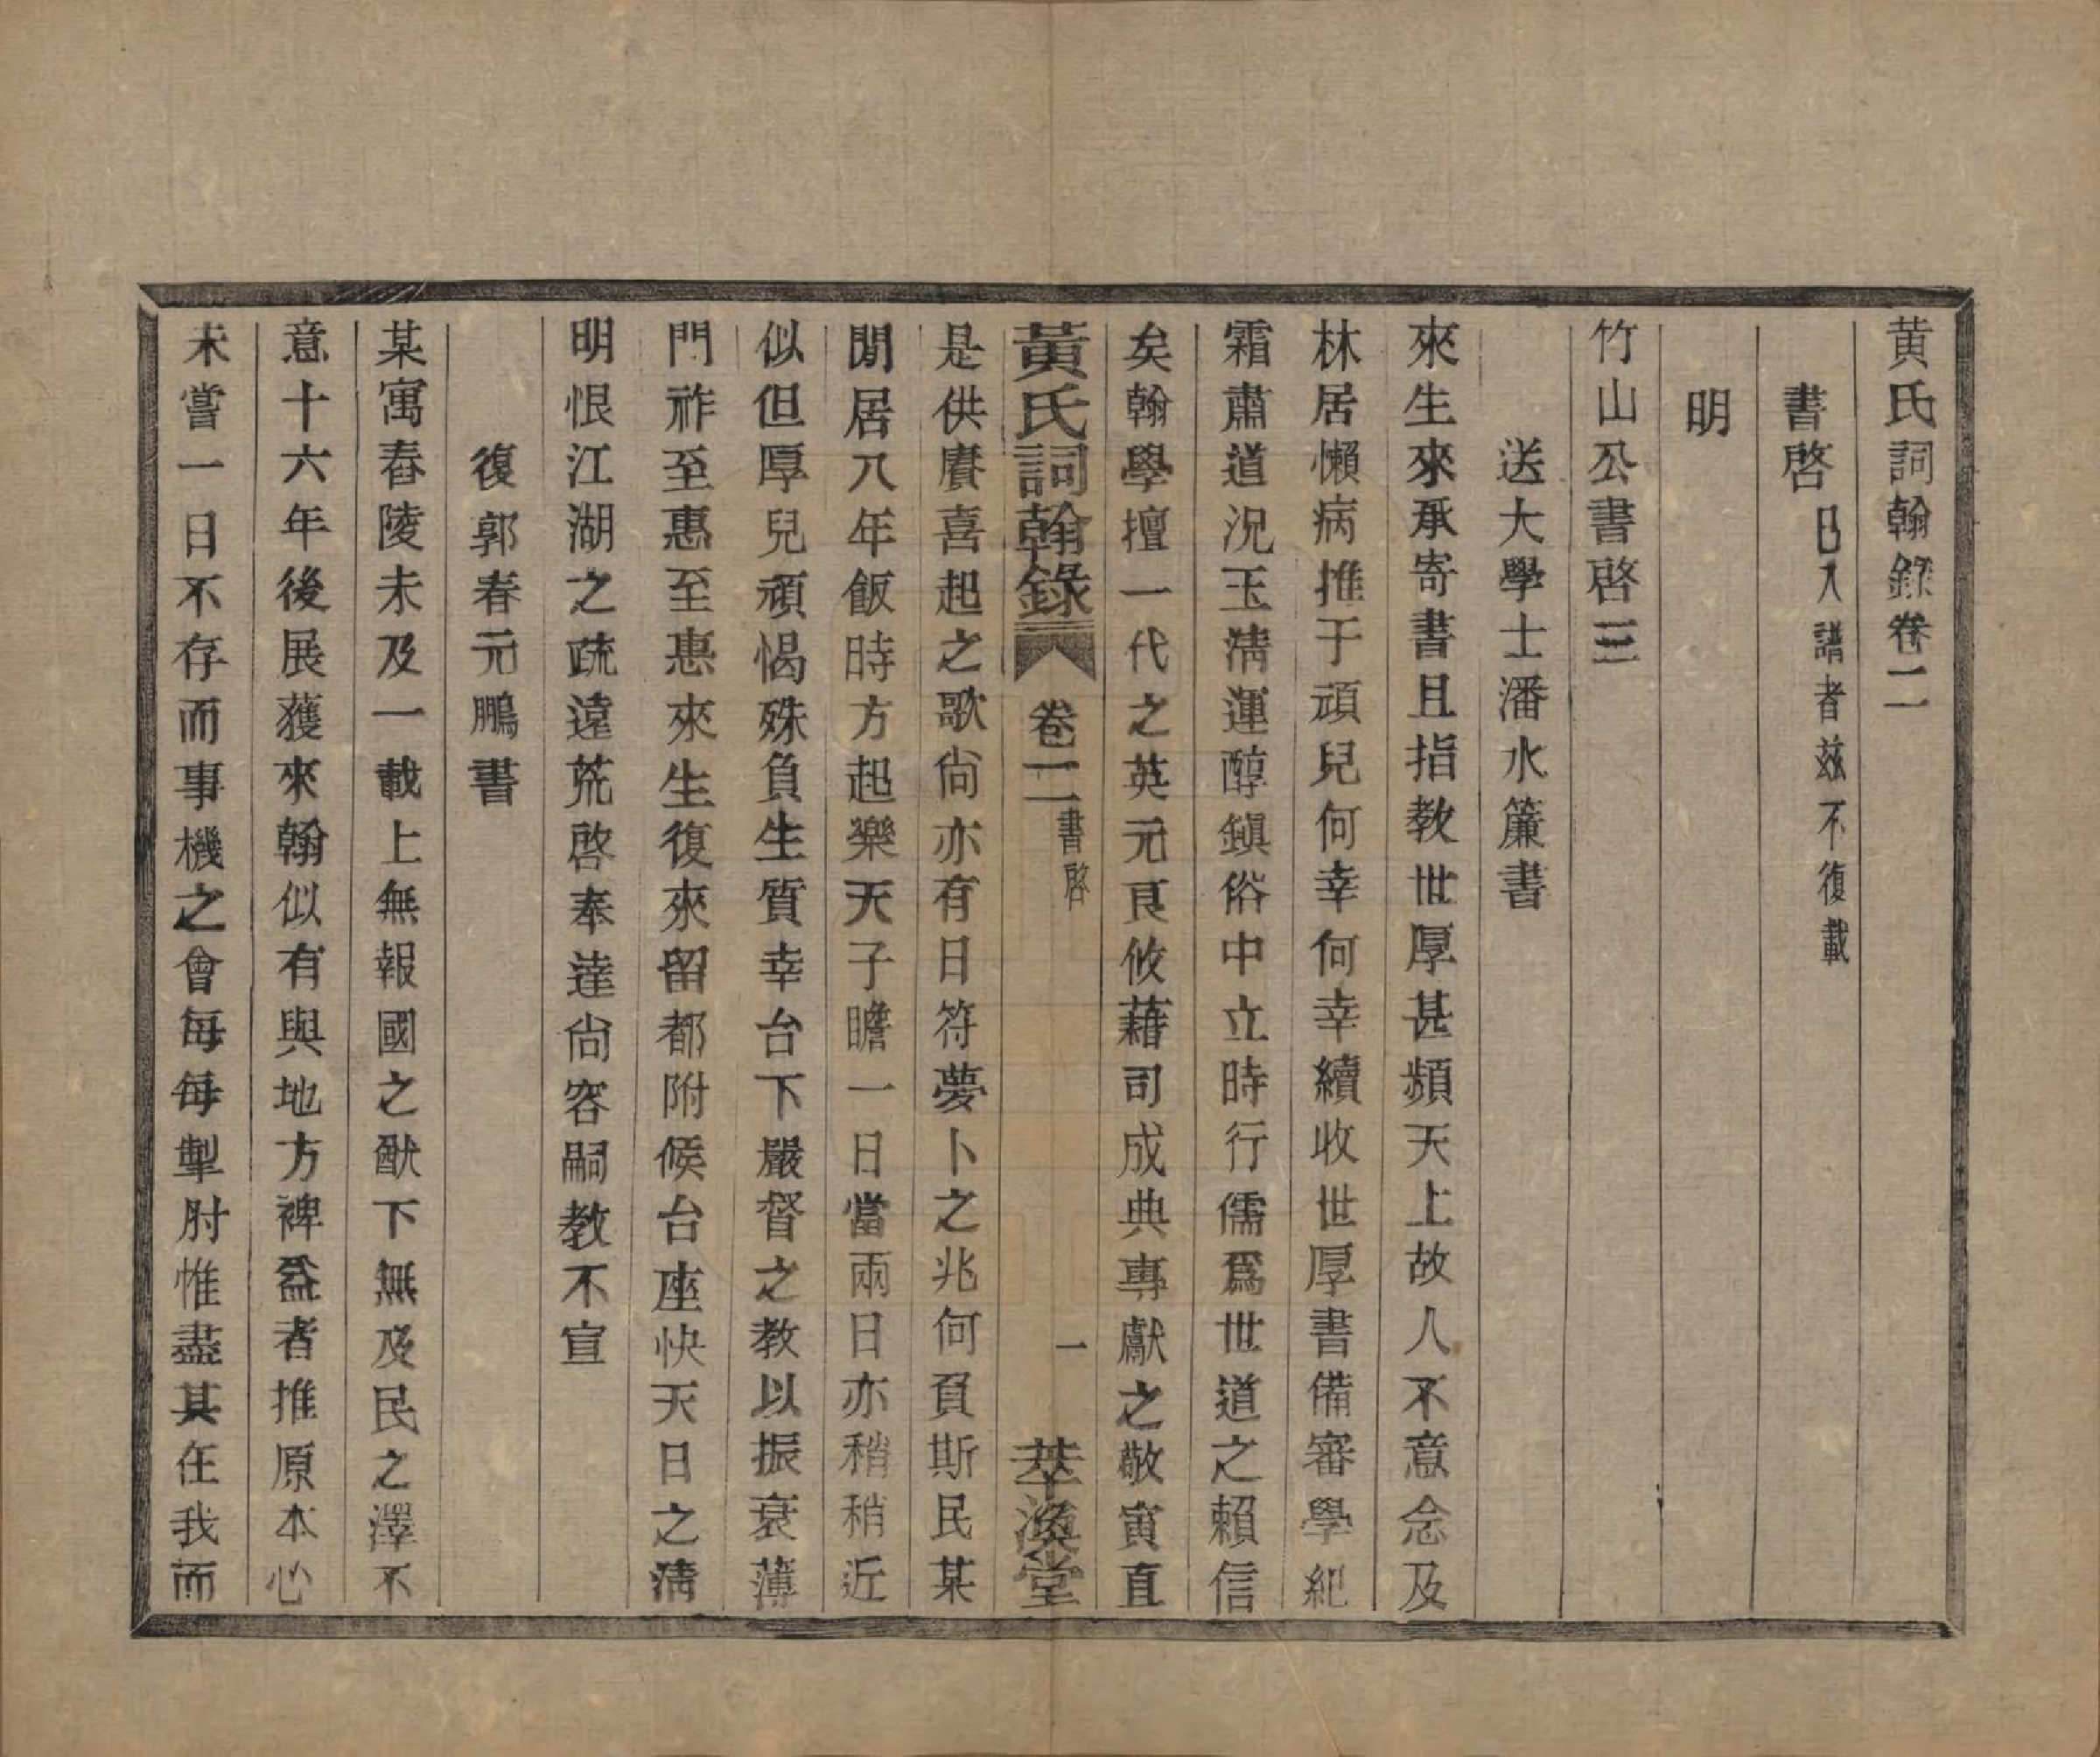 黄氏詞翰錄卷二
書啓 已入譜者玆不復載
明
竹山公書啓三
送大學士潘水簾書
來生來承寄書且指教世厚甚頻天上故人不意念及
林居懶病推于頑兒何幸何幸續收世厚書備審學紀
霜肅道況玉淸運醇鎭俗中立時行儒爲世道之賴信
矣翰學擅一代之英元良攸藉司成典專獻之敬寅直
黃氏詞翰錄 卷二 書啓 一 萃渙堂
是供賡喜起之歌尙亦有日符夢卜之兆何負斯民某
閒居八年飯時方起樂天子瞻一日當兩日亦稍稍近
似但厚兒頑愒殊負生質幸台下嚴督之教以振衰薄
門祚至惠至惠來生復來留都附候台座快天日之淸
明恨江湖之疏遠荒啓奉達尙容嗣教不宣
復郭春元鵬書
某寓舂陵未及一載上無報國之猷下無及民之澤不
意十六年後展獲來翰似有與地方裨益者推原本心
未嘗一日不存而事機之會每每掣肘惟盡其在我而